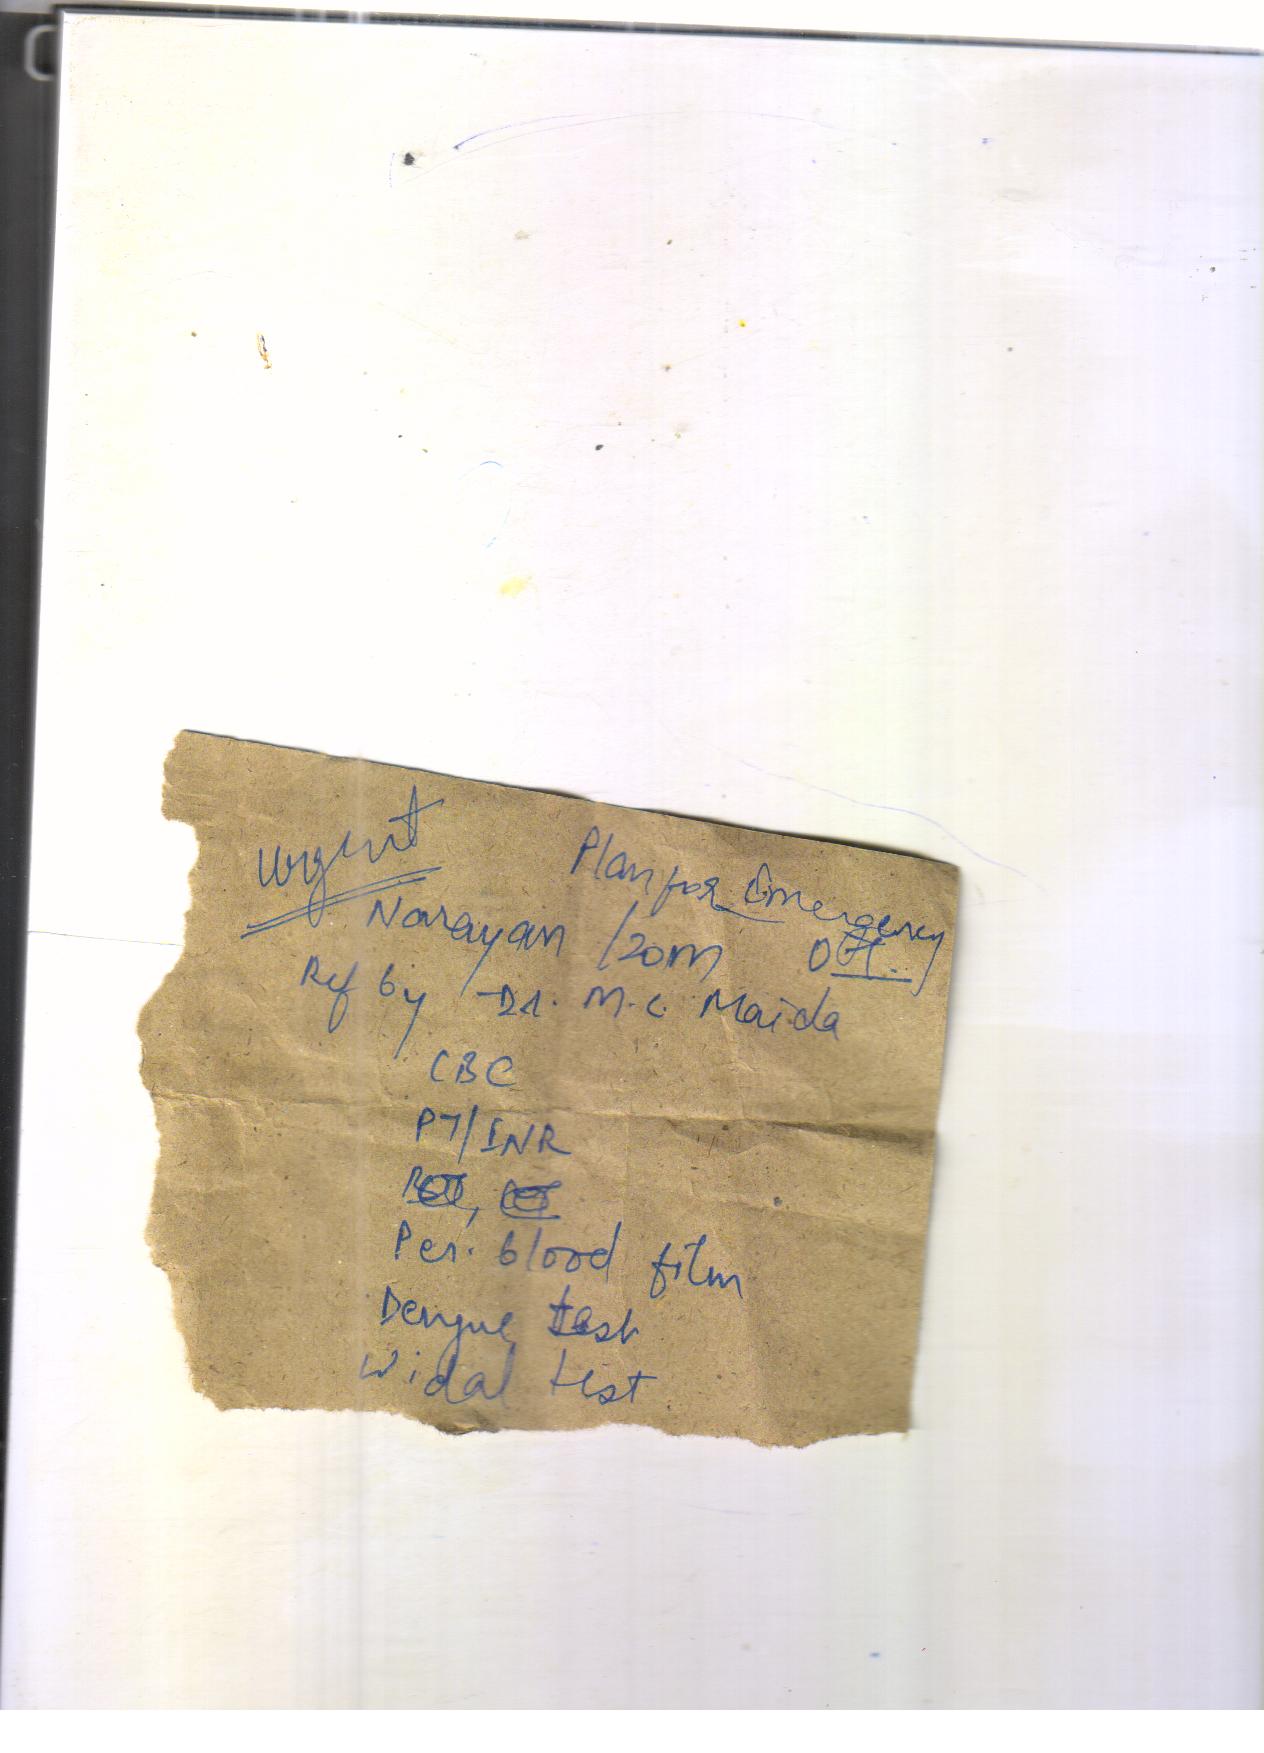 Urgent
Plan for Emergency
Narayan /20m
Ref by Dr. M.C. Maida
CBC
PT/INR
Per. blood film
Dengue test
Widal test